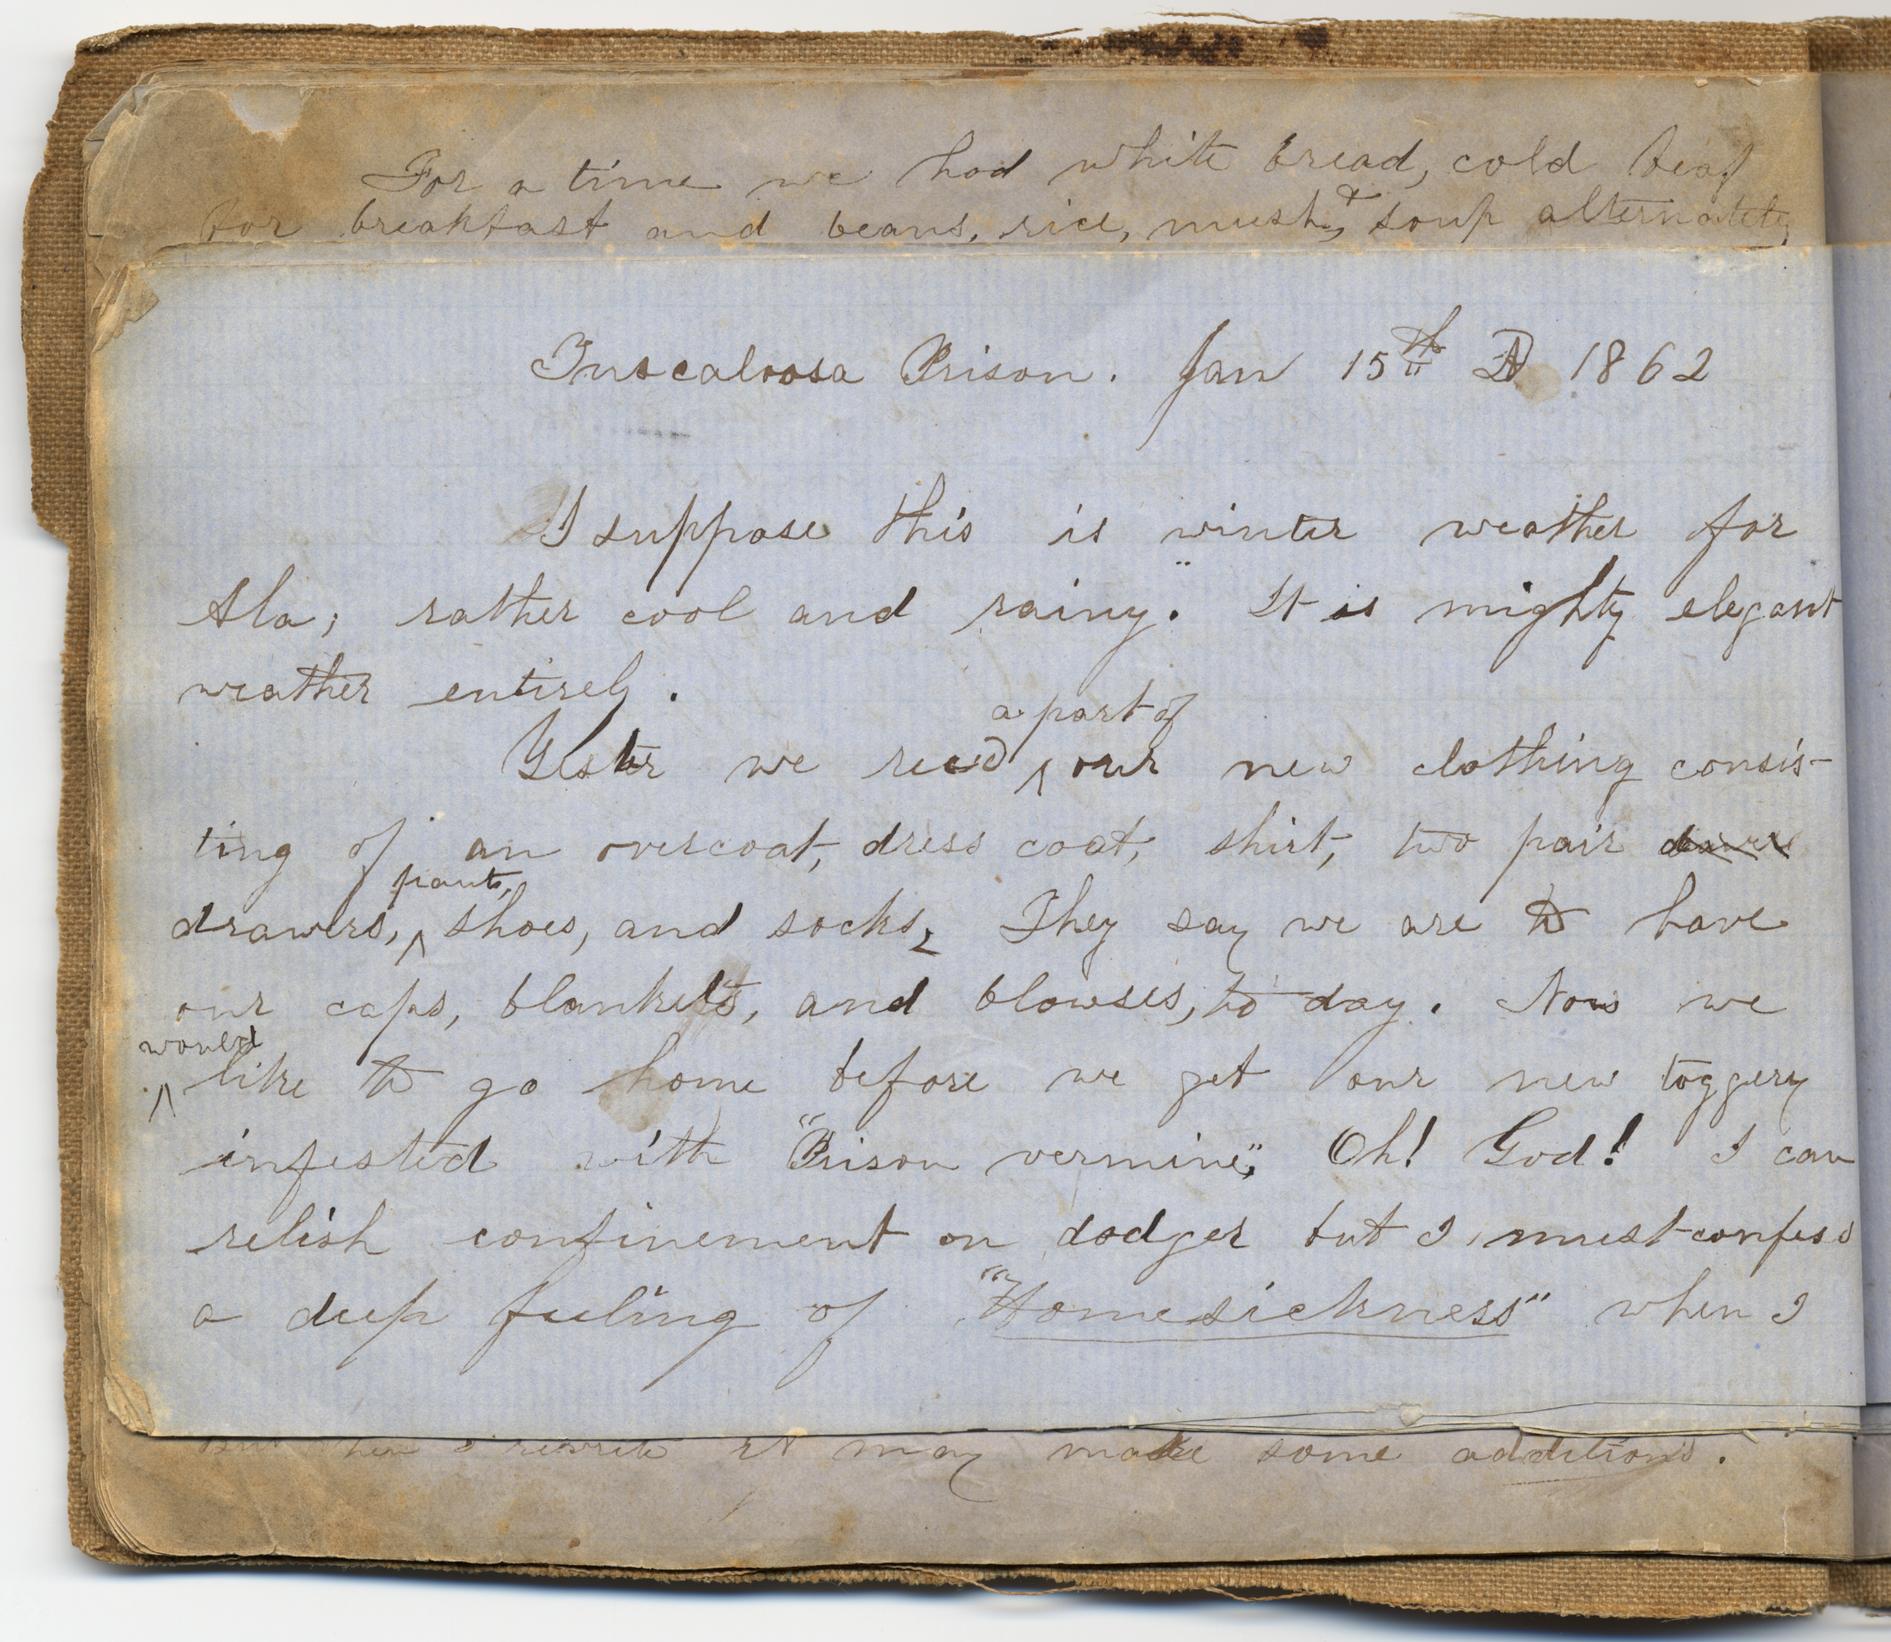 For a time we had white bread, cold beaf
for breakfast and beans, rice, mush, & soup alternately
Tuscaloosa Prison. Jan 15th AD 1862
I suppose this is "winter weather for
Ala; rather cool and rainy." It is mighty elegant
weather entirely.
a part of
Yester we recd ^ our new clothing consis-
ting of an overcoat, dress coat, shirt, two pair
pants,
drawers, ^ shoes, and socks, They say we are to have
our caps, blankets, and blowses, to day. Now we
would
^ like to go home before we get our new toggery
infested with "Prison vermine," Oh! God! I can
relish confinement on dodger but I must confess
a deep feeling of "Homesickness" when I
but when I rewrite it may make some additions.